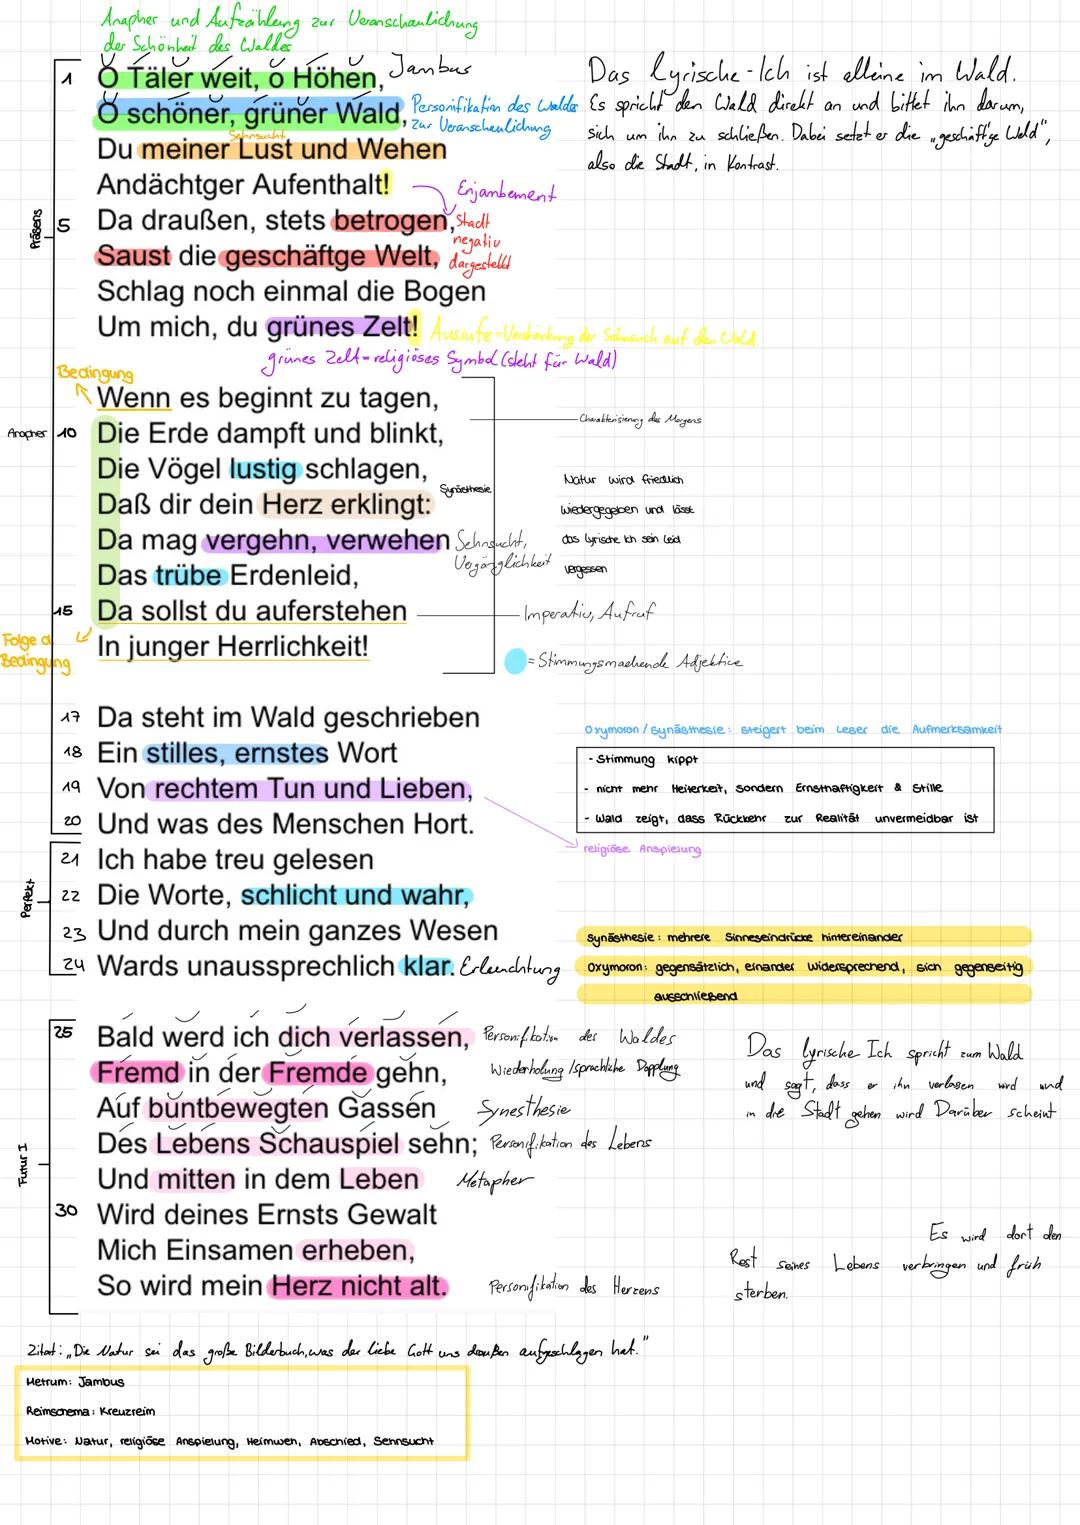 Anapher und Aufzählung zur Veranschaulichung
der Schönheit des Waldes
1 O Täler weit, o Höhen, Jambus
O schöner, grüner Wald, Personifikation des Waldes
zur Veranschaulichung
Sehnsucht
Du meiner Lust und Wehen
Andächtger Aufenthalt!
Enjambement
5 Da draußen, stets betrogen, Stadt
negativ
Saust die geschäftge Welt, dargestellt
Schlag noch einmal die Bogen
Um mich, du grünes Zelt! Ausrufe = Verstärkung der Sehnsuch auf den Wald
grünes Zelt = religiöses Symbol (steht für Wald)
Präsens
Das lyrische-Ich ist alleine im Wald.
Es spricht den Wald direkt an und bittet ihn darum,
sich um ihn zu schließen. Dabei setzt er die „geschäft'ge Welt",
also die Stadt, in Kontrast.
Bedingung
Wenn es beginnt zu tagen,
Charakterisierung des Morgens
Anapher 10 Die Erde dampft und blinkt,
Die Vögel lustig schlagen,
Synästhesie
Daß dir dein Herz erklingt:
Da mag vergehn, verwehen Sehnsucht,
Vergänglichkeit
Das trübe Erdenleid,
15 Da sollst du auferstehen Imperativ, Aufruf
In junger Herrlichkeit!
Folge d.
Bedingung
= Stimmungsmachende Adjektive
Natur wird friedlich
wiedergegeben und lässt
das lyrische Ich sein Leid
vergessen
17 Da steht im Wald geschrieben
18 Ein stilles, ernstes Wort
19 Von rechtem Tun und Lieben,
20 Und was des Menschen Hort.
Oxymoron / Synästhesie: steigert beim Leser die Aufmerksamkeit
- Stimmung kippt
- nicht mehr Heiterkeit, sondern Ernsthaftigkeit & Stille
- Wald zeigt, dass Rückkehr zur Realität unvermeidbar ist
religiöse Anspielung
Perfekt
21 Ich habe treu gelesen
22 Die Worte, schlicht und wahr,
23 Und durch mein ganzes Wesen
24 Wards unaussprechlich klar. Erleuchtung
Synästhesie: mehrere Sinneseindrücke hintereinander
Oxymoron: gegensätzlich, einander widersprechend, sich gegenseitig
ausschließend
25 Bald werd ich dich verlassen, Personifikation des Waldes
Fremd in der Fremde gehn, Wiederholung / sprachliche Dopplung
Auf buntbewegten Gassen Synesthesie
Des Lebens Schauspiel sehn; Personifikation des Lebens
Futur I
Und mitten in dem Leben Metapher
30 Wird deines Ernsts Gewalt
Mich Einsamen erheben,
So wird mein Herz nicht alt. Personifikation des Herzens
Das lyrische Ich spricht zum Wald
und sagt, dass er ihn verlasen wird und
in die Stadt gehen wird Darüber scheint
Es wird dort den
Rest seines Lebens verbringen und früh
sterben.
Zitat: „Die Natur sei das große Bilderbuch, was der liebe Gott uns draußen aufgeschlagen hat."
Metrum: Jambus
Reimschema: Kreuzreim
Motive: Natur, religiöse Anspielung, Heimweh, Abschied, Sehnsucht